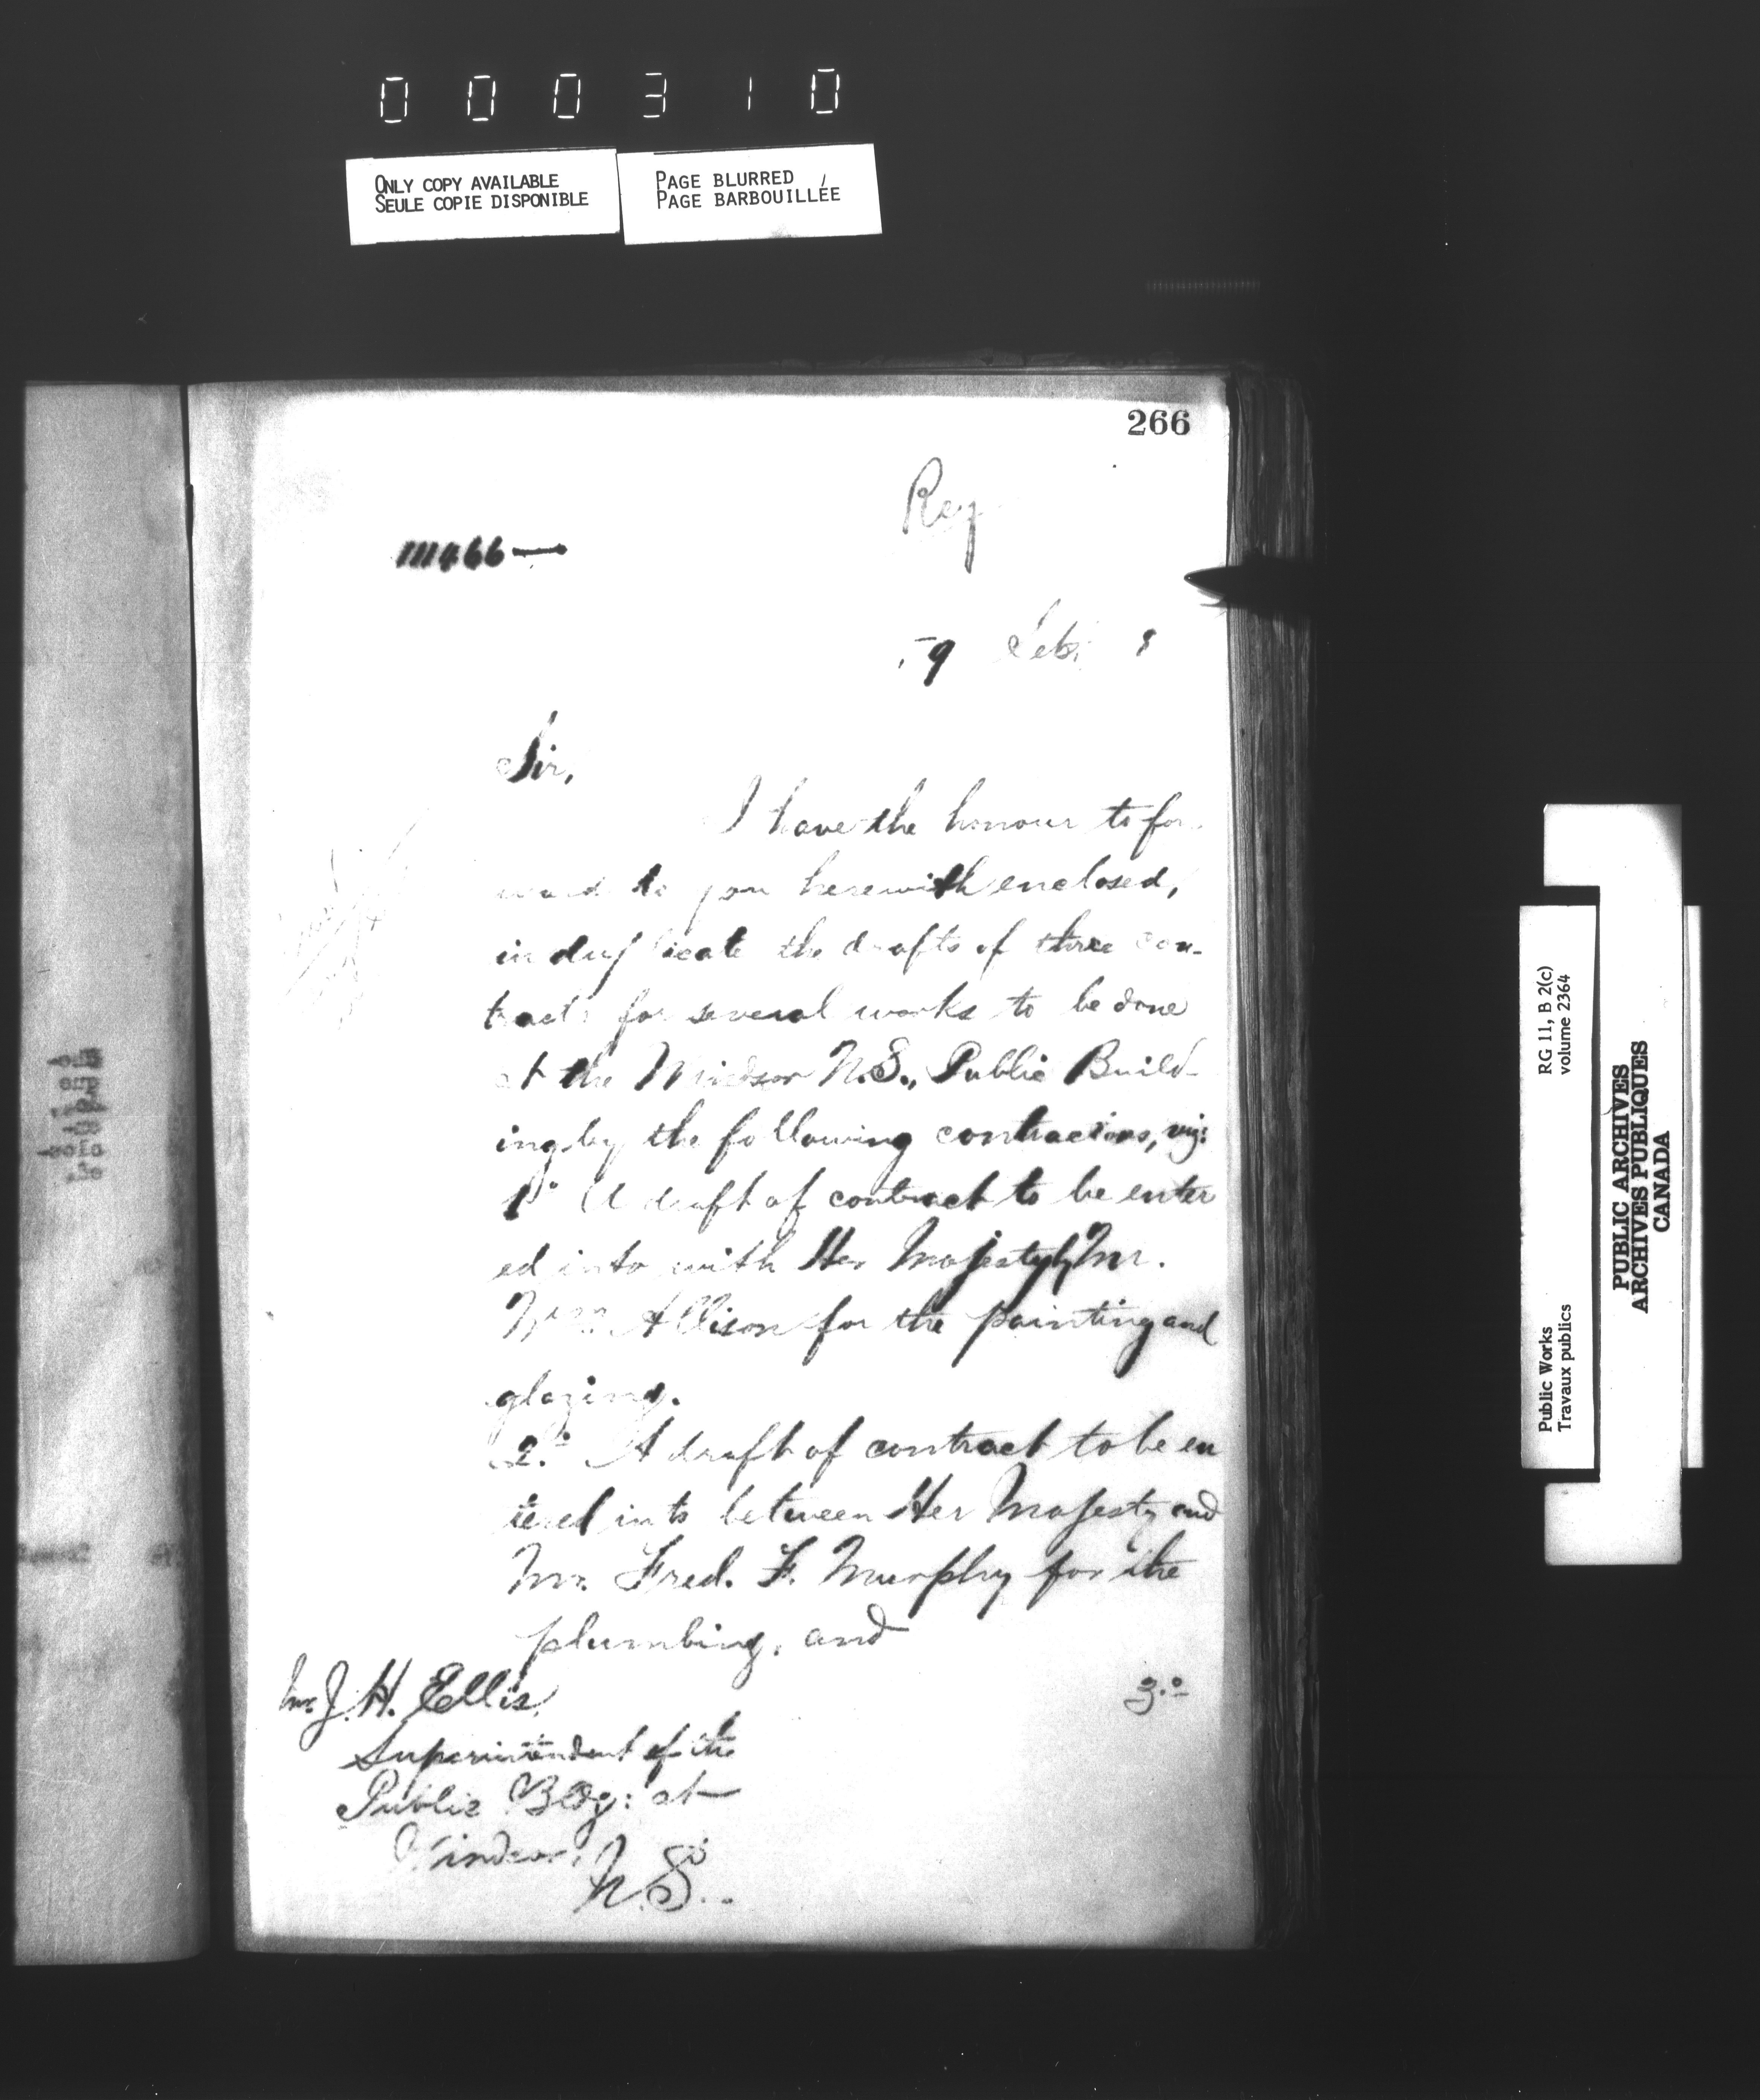 000310
ONLY COPY AVAILABLE
SEULE COPIE DISPONIBLE
PAGE BLURRED
PAGE BARBOUILLÉE
266
Reg
111466—
9 Feb: 8
Sir,
I have the honour to for
ward to you herewith enclosed,
in duplicate the drafts of three con-
tracts for several works to be done
at the Windsor N.S., Public Build-
ing by the following contractors, viz:
1º A draft of contract to be enter
ed into with Her Majesty by Mr.
Wm. Allison for the painting and
glazing.
2.º A draft of contract to be en
tered into between Her Majesty and
Mr. Fred. F. Murphy for the
plumbing, and
3.º
Mr. J. H. Ellis,
Superintendent of the
Public Bldg: at
Windsor,
N.S..
RG 11, B 2(c)
volume 2364
Public Works
Travaux publics
PUBLIC ARCHIVES
ARCHIVES PUBLIQUES
CANADA